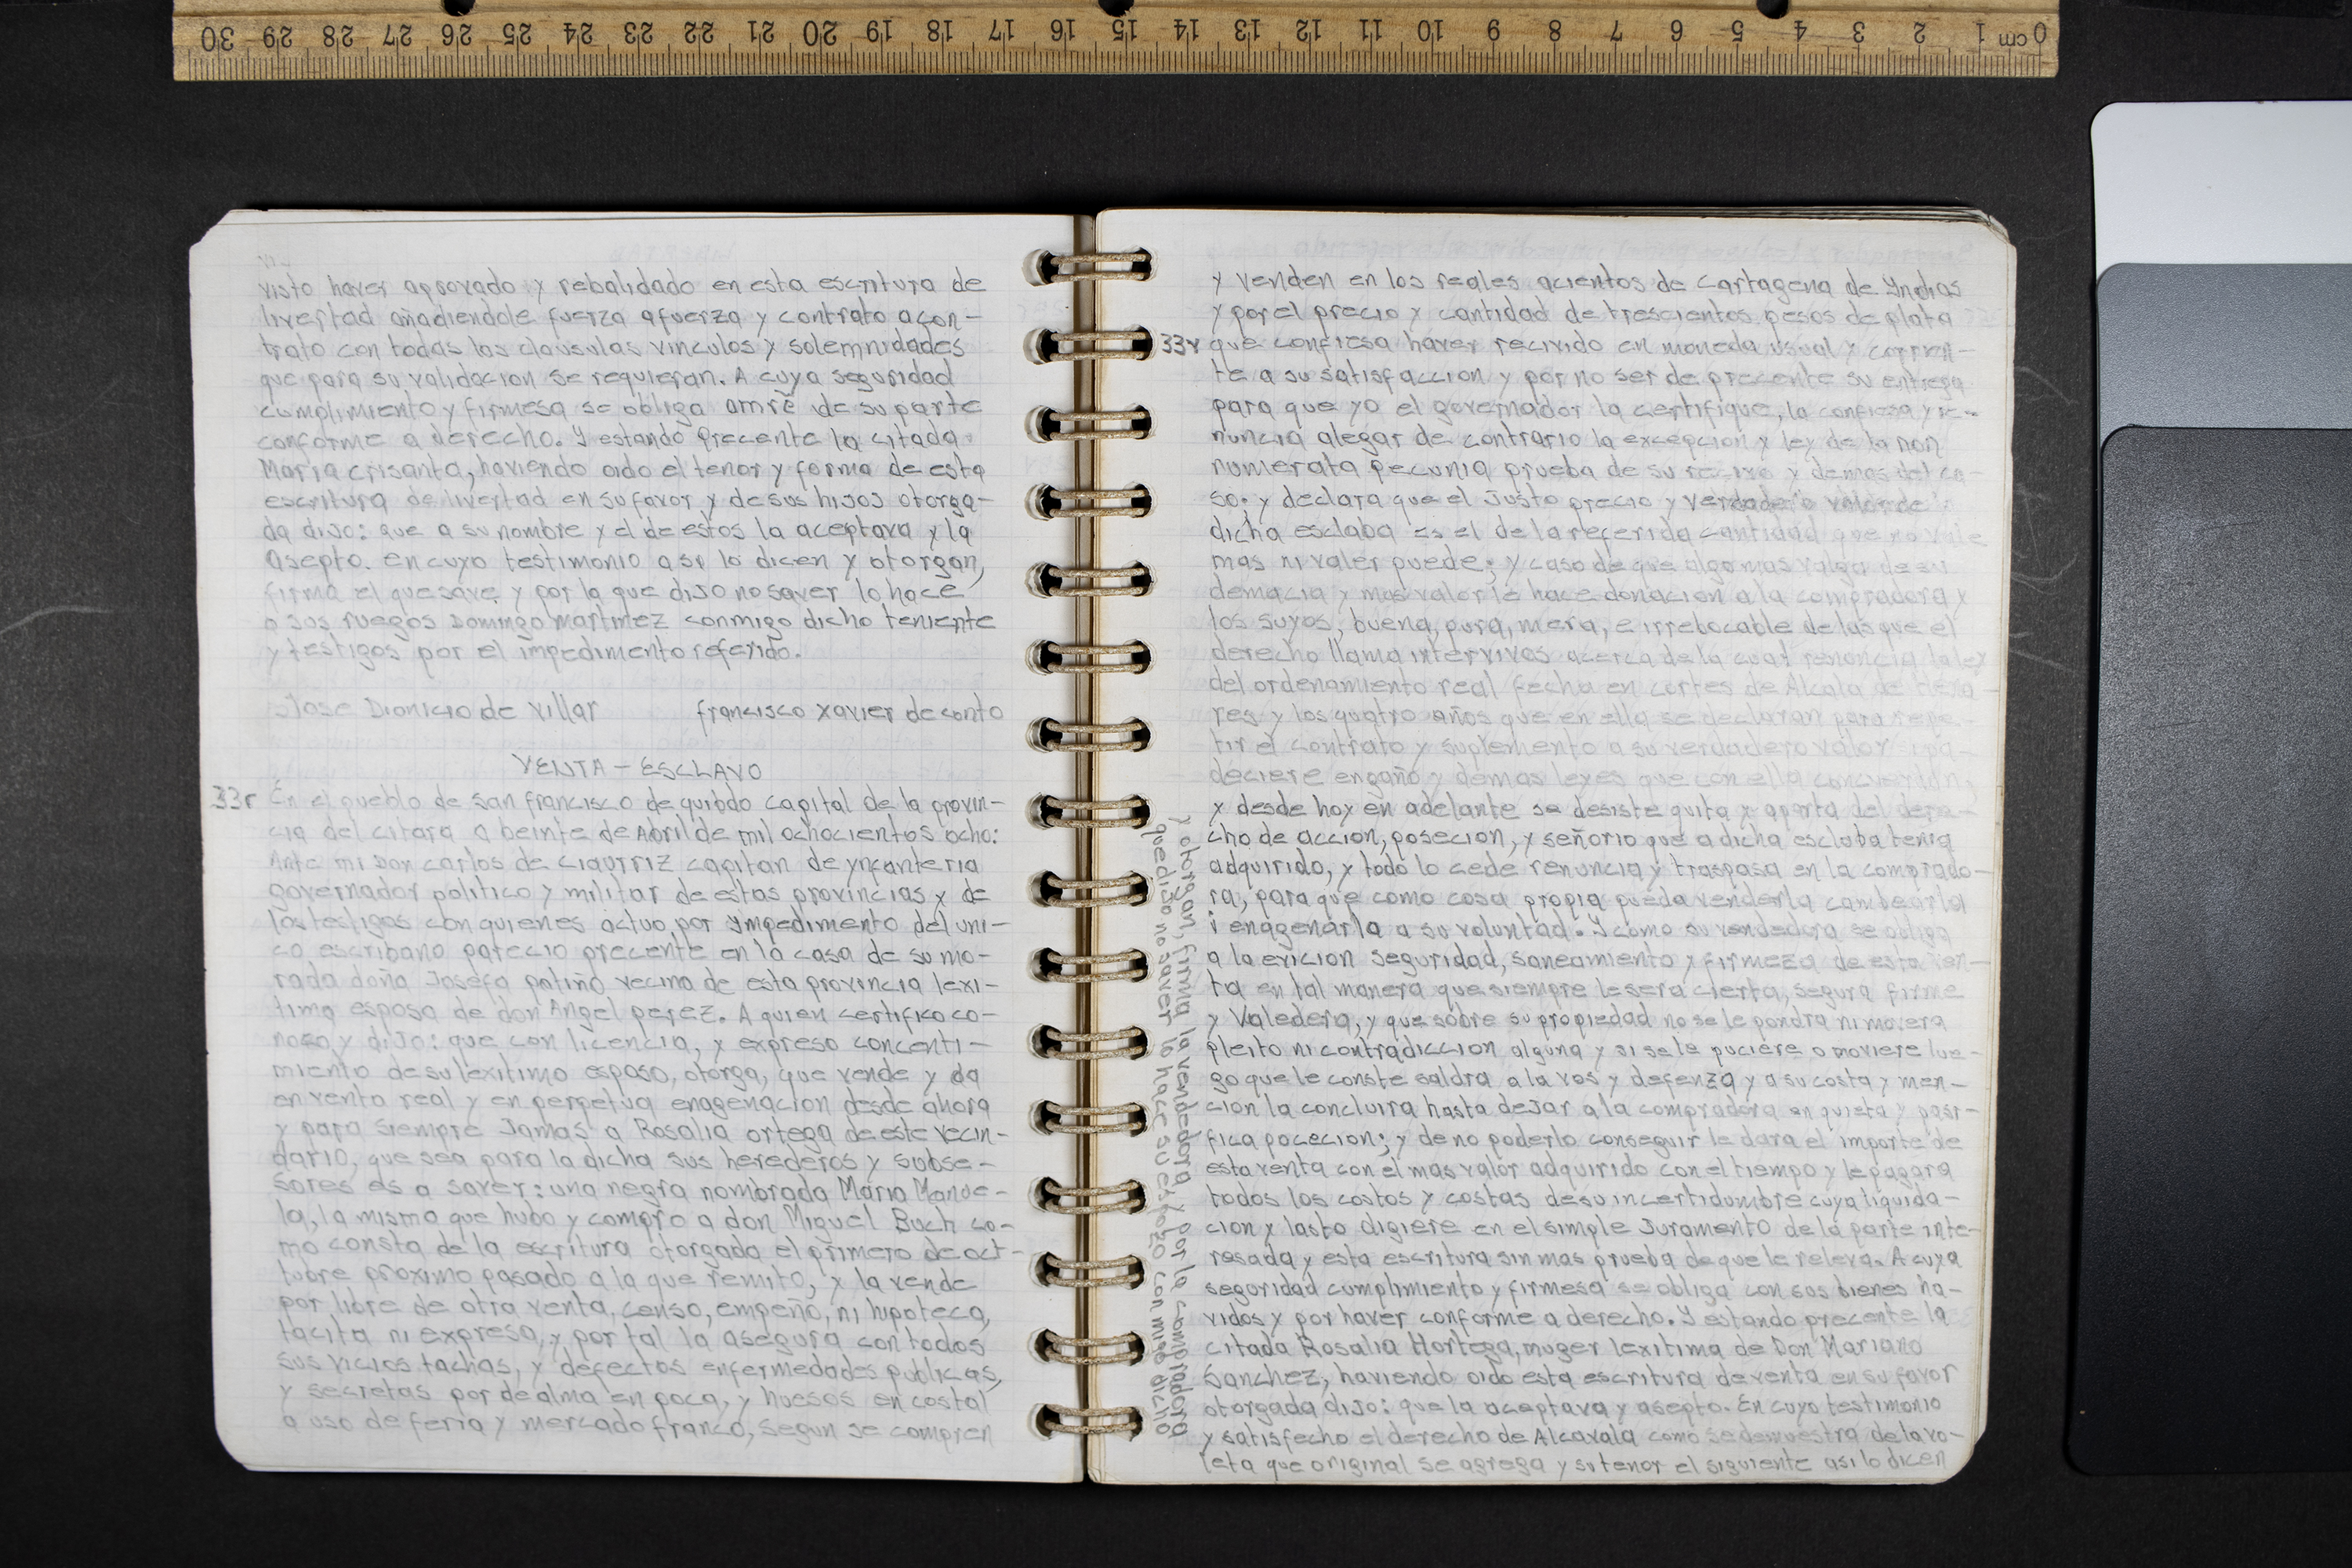 0 cm 1 2 3 4 5 6 7 8 9 10 11 12 13 14 15 16 17 18 19 20 21 22 23 24 25 26 27 28 29 30
visto haver aprovado y rebalidado en esta escritura de
livertad añadiendole fuerza afuerza y contrato acon-
trato con todas las clausulas vinculos y solemnidades
que para su validacion se requieran. A cuya seguridad
cumplimiento y firmesa se obliga amrē de su parte
conforme a derecho. Y estando precente la citada
Maria crisanta, haviendo oido el tenor y forma de esta
escritura de livertad en su favor y de sus hijos otorga-
da dijo: que a su nombre y el de estos la aceptava y la
asepto. en cuyo testimonio asi lo dicen y otorgan,
firma el que save, y por la que dijo no saver lo hace
a sus ruegos Domingo martinez conmigo dicho teniente
y testigos por el impedimento referido.
Jose Dionicio de Villar francisco xavier de conto
VENTA - ESCLAVO
33r En el pueblo de san francisco de quibdo capital de la provin-
cia del citara a beinte de Abril de mil ochocientos ocho:
Ante mi Don carlos de ciaurriz capitan de ynfanteria
governador politico y militar de estas provincias y de
los testigos con quienes actuo por ympedimento del uni-
co escribano parecio precente en la casa de su mo-
rada doña Josefa patiño vecina de esta provincia lexi-
tima esposa de don Angel perez. A quien certifico co-
nozco y dijo: que con licencia, y expreso concenti-
miento de su lexitimo esposo, otorga, que vende y da
en venta real y en perpetua enagenacion desde ahora
y para siempre Jamas a Rosalia ortega de este vecin-
dario, que sea para la dicha sus herederos y subse-
sores es a saver: una negra nombrada Maria Manue-
la, la misma que hubo y compro a don Miguel Buch co-
mo consta de la escritura otorgada el primero de oct-
tubre proximo pasado a la que remito, y la vende
por libre de otra venta, censo, empeño, ni hipoteca,
tacita ni expresa, y por tal la asegura con todos
sus vicios tachas, y defectos enfermedades publicas,
y secretas por de alma en poca, y huesos en costal
a uso de feria y mercado franco, segun se compren
y venden en los reales acientos de Cartagena de Yndias
y por el precio y cantidad de trescientos pesos de plata
33v que confiesa haver recivido en moneda usual y corrien-
te a su satisfaccion y por no ser de precente su entrega
para que yo el governador la certifique, la confiesa y re-
nuncia alegar de contrario la excepcion y ley de la non
numerata pecunia prueba de su recivo y demas del ca-
so: y declara que el Justo precio y verdadero valor de
dicha esclaba es el de la referida cantidad que no vale
mas ni valer puede; y caso de que algo mas valga de su
demacia y mas valor le hace donacion a la compradora y
los suyos, buena, pura, mera, e irrebocable de las que el
derecho llama intervivos acerca de la cual renuncia la ley
del ordenamiento real fecha en cortes de Alcala de Hena-
res y los quatro años que en ella se declaran para repe-
tir el contrato y suplemento a su verdadero valor si pa-
deciere engaño y demas leyes que con ella concuerdan,
y desde hoy en adelante se desiste quita y aparta del dere-
cho de accion, posecion, y señorio que a dicha esclaba tenia
adquirido, y todo lo cede renuncia y traspasa en la comprado-
ra, para que como cosa propia pueda venderla cambearla
i enagenarla a su voluntad. Y como su vendedora se obliga
a la evicion seguridad, saneamiento y firmeza de esta ven-
ta en tal manera que siempre le sera cierta, segura firme
y Valedera, y que sobre su propiedad no se le pondra ni movera
pleito ni contradiccion alguna y si se le puciere o moviere lue-
go que le conste saldra a la vos y defenza y a su costa y men-
cion la concluira hasta dejar a la compradora en quieta y pasi-
fica pocecion; y de no poderlo conseguir le dara el importe de
esta venta con el mas valor adquirido con el tiempo y le pagara
todos los costos y costas de su incertidumbre cuya liquida-
cion y lasto digiere en el simple Juramento de la parte inte-
resada y esta escritura sin mas prueba de que le releva. A cuya
seguridad cumplimiento y firmesa se obliga con sus bienes ha-
vidos y por haver conforme a derecho. Y estando precente la
citada Rosalia Hortega, muger lexitima de Don Mariano
Sanchez, haviendo oido esta escritura de venta en su favor
otorgada dijo: que la aceptava y asepto. En cuyo testimonio
y satisfecho el derecho de Alcavala como se demuestra de la vo-
leta que original se agrega y su tenor el siguiente asi lo dicen
y otorgan, firma la vendedora y por la compradora
que dijo no saver lo hace su esposo conmigo dicho